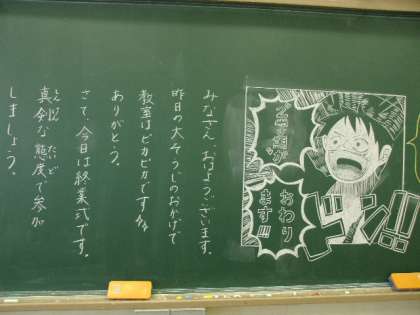 2学期が
おわり
ます!!!
ドン!!
みなさん、おはようございます。
昨日の大そうじのおかげで
教室はピカピカです
ありがとう。
さて、今日は終業式です。
真剣な態度で参加
たいど
しましょう。